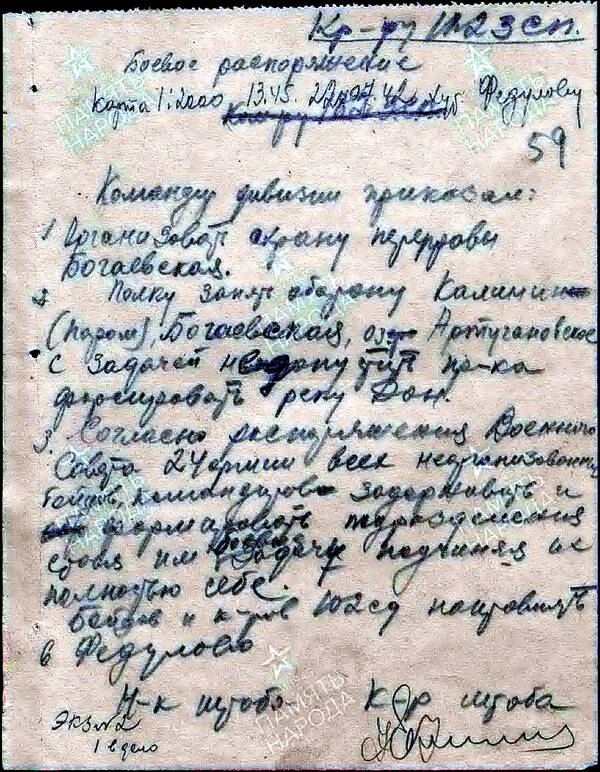 Кр-ру 1023 сп.
Боевое распоряжение
Карта 1:2000 13.45. 22.07.42 Федулову
59
Командир дивизии приказал:
1 Организовать охрану переправы
Богаевская.
2 Полку занять оборону Калинин
(паром), Богаевская, оз. Артугановское
с задачей недопустить пр-ка
форсировать реку Дон.
3. Согласно распоряжения Военного
Совета 24 армии всех неорганизованных
бойцов, командиров задерживать и
формировать подразделения
ставя им боевые задачи подчиняя их
полностью себе.
Бойцов и к-ров 102 сд направлять
в Федулово
Н-к штаба К-р штаба
Экз №2
1 в дело
ПАМЯТЬ
НАРОДА
ПАМЯТЬ
НАРОДА
ПАМЯТЬ
НАРОДА